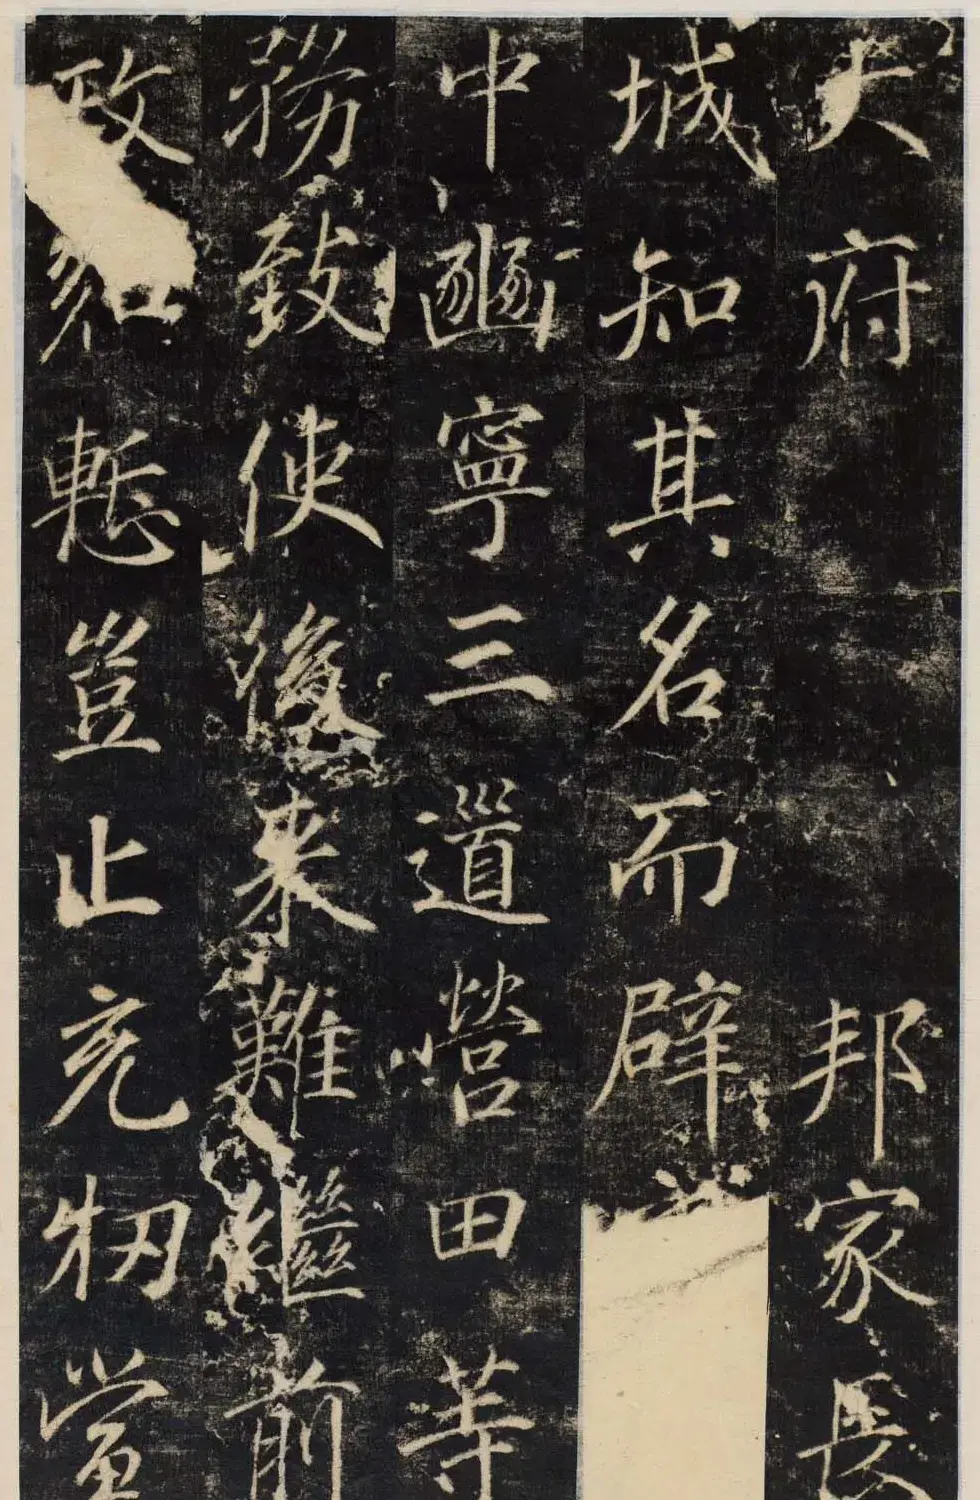 大府邦家長
城知其名而辟
中豳寧三道營田等
務致使後來難繼前
政慙豈止充牣當